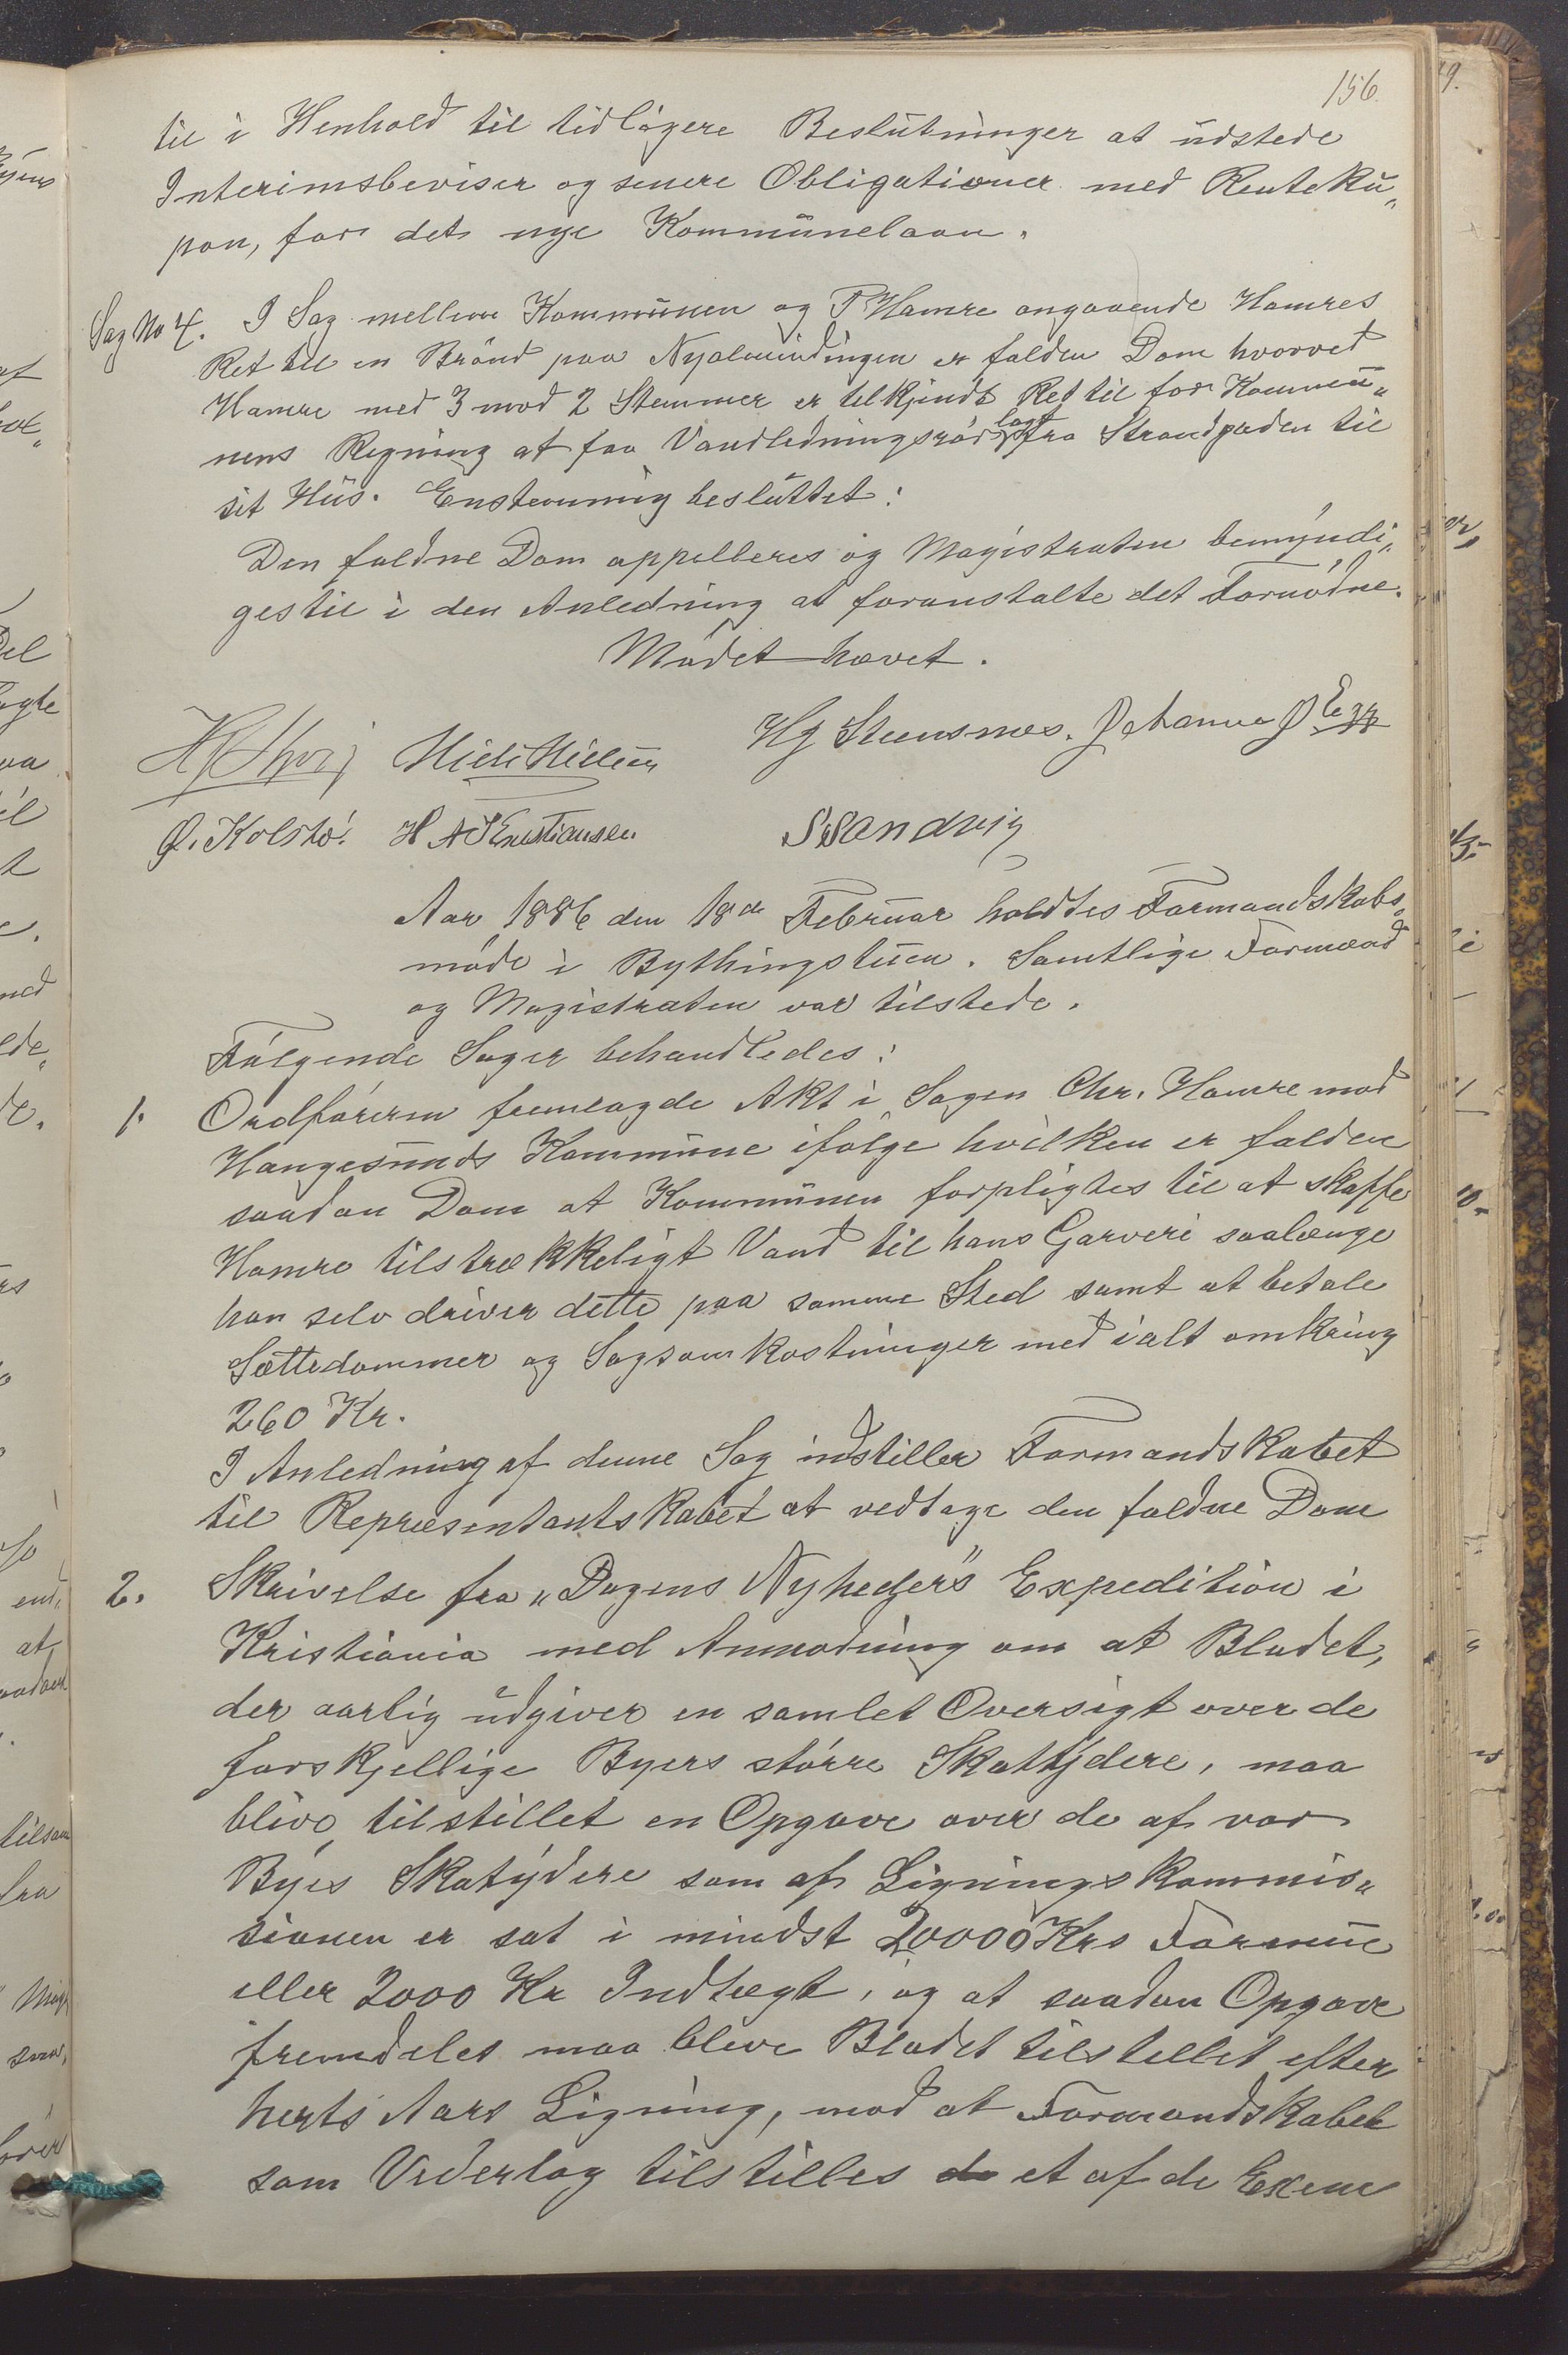 156.
til i Henhold til tidligere Beslutninger at udstede
Interimsbeviser og senere Obligationer med Renteku„
pon, for det nye Kommunelaan.
Sag No 4. I Sag mellem Kommunen og T Hamre angaaende Hamres
Ret til en Brönd paa Nyalmindingen er falden Dom hvorved
Hamre med 3 mod 2 Stemmer er tilkjendt Ret til for Kommu„
nens Regning at faa Vandledningsrör lagt fra Strandgaden til
sit Hus. Enstemmig besluttet:
Den faldne Dom appelleres og Magistraten bemyndi„
ges til i den Anledning at foranstalte det Fornödne.
Mödet hævet.
Niels Nielsen HJ Steensnæs. Johannes J Egge
Ø. Kolstö. H A Kristiansen S Sandvig
Aar 1886 den 18de Februar holdtes Formandskabs„
möde i Bythingstuen. Samtlige Formænd
og Magistraten var tilstede.
Fölgende Sager behandledes:
1. Ordföreren fremlagde Akt i Sagen Chr. Hamre mod
Haugesunds Kommune ifölge hvilken er falden
saadan Dom at Kommunen forpligtes til at skaffe
Hamre tilstrækkeligt Vand til hans Garveri saalænge
han selv driver dette paa samme Sted samt at betale
Sættedommer og Sagsomkostninger med ialt omkring
260 Kr.
I Anledning af denne Sag indstiller Formandskabet
til Repræsentantskabet at vedtage den faldne Dom
2. Skrivelse fra „Dagens Nyheder's" Expedition i
Kristiania med Anmodning om at Bladet,
der aarlig udgiver en samlet Oversigt over de
forskjellige Byers större Skatydere, maa
blive tilstillet en Opgave over de af vor
Byes Skatydere som af Ligningskommis„
sionen er sat i mindst 20000 Krs Formue
eller 2000 Kr Indtægt, og at saadan Opgave
fremdeles maa blive Bladet tilstillet efter
hverts Aars Ligning, mod at Formandskabet
som Vederlag tilstilles de et af de Exem